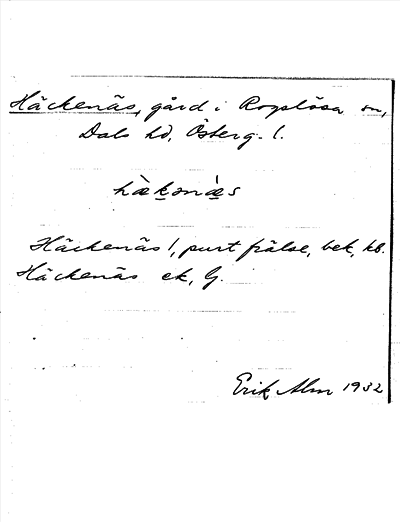 Häckenäs, gård i Rogslösa sn,
Dals hd, Österg. l.
hæ̀kənæ̀s
Häckenäs 1, purt frälse, bek, kb.
Häckenäs ek, G.
Erik Alm 1932